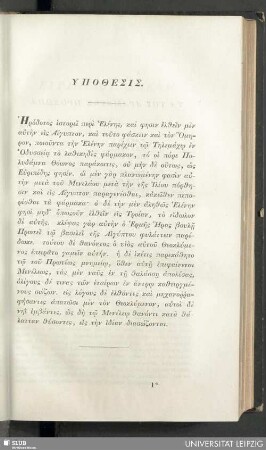 ΥΠΟΘΕΣΙΣ.
Ἡρόδοτος ἱστορεῖ περὶ Ἑλένης, καὶ φησὶν ἐλθεῖν μὲν
αὐτὴν εἰς Αἴγυπτον, καὶ τοῦτο φάσκειν καὶ τὸν Ὅμη-
ρον, ποιοῦντα τὴν Ἑλένην παρέχειν τῷ Τηλεμάχῳ ἐν
Ὀδυσσείᾳ τὸ λαθικηδὲς φάρμακον, τό οἱ πόρε Πο-
λυδάμνα Θόωνος παράκοιτις, οὐ μὴν δὲ οὕτως, ὡς
Εὐριπίδης φησίν. οἱ μὲν γὰρ πλανωμένην φασὶν αὐ-
τὴν μετὰ τοῦ Μενελάου μετὰ τὴν τῆς Ἰλίου πόρθη-
σιν καὶ εἰς Αἴγυπτον παραγενέσθαι, κἀκεῖθεν πεπο-
ρίσθαι τὰ φάρμακα· ὁ δὲ τὴν μὲν ἀληθῶς Ἑλένην
φησὶ μηδ' ὁπωσοῦν ἐλθεῖν εἰς Τροίαν, τὸ εἴδωλον
δὲ αὐτῆς. κλέψας γὰρ αὐτὴν ὁ Ἑρμῆς Ἥρας βουλῇ
Πρωτεῖ τῷ βασιλεῖ τῆς Αἰγύπτου φυλάττειν παρέ-
δωκε. τούτου δὲ θανόντος ὁ υἱὸς αὐτοῦ Θεοκλύμε-
νος ἐπειρᾶτο γαμεῖν αὐτήν. ἡ δὲ ἱκέτις παρεκάθητο
τῷ τοῦ Πρωτέως μνήματι, ὅθεν αὐτῇ ἐπιφαίνεται
Μενέλεως, τὰς μὲν ναῦς ἐν τῇ θαλάσσῃ ἀπολέσας,
ὀλίγους δέ τινας τῶν ἑταίρων ἐν ἄντρῳ καθειργμέ-
νους σώζων. εἰς λόγους δὲ ἐλθόντες καὶ μηχανορρα-
φήσαντες ἀπατῶσι μὲν τὸν Θεοκλύμενον, αὐτοὶ δὲ
νηῒ ἐμβάντες, ὡς δὴ τῷ Μενέλεῳ θανόντι κατὰ θά-
λατταν θύσοντες, εἰς τὴν ἰδίαν διασώζονται.
1*
SLUB
UNIVERSITÄT LEIPZIG